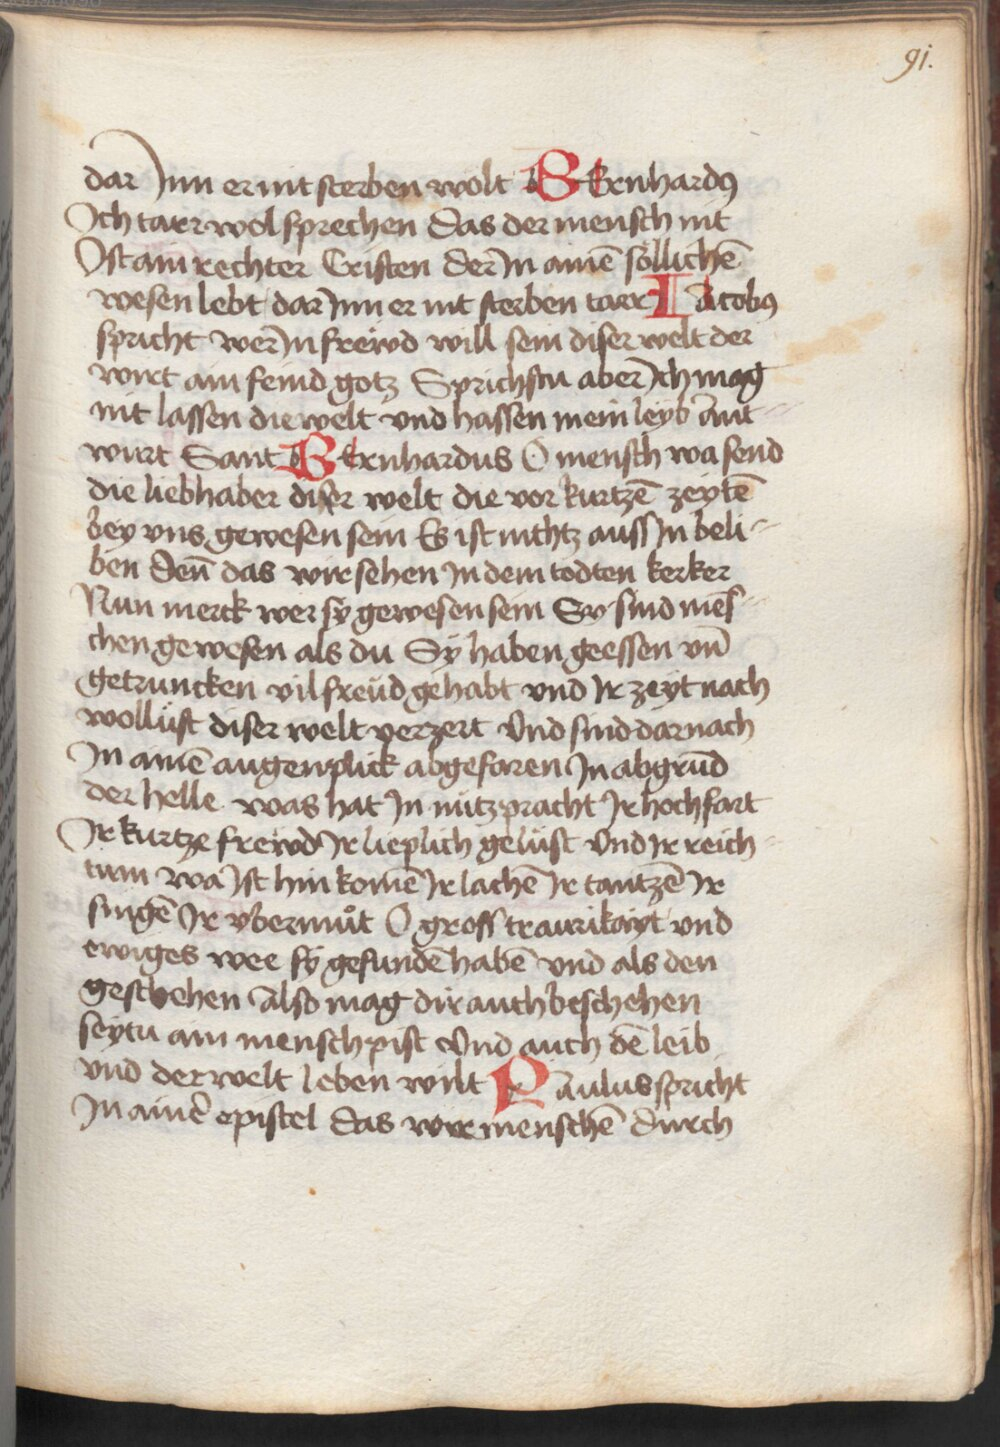 91.
dar Inn er nit sterben wolt BErnhardus
Ich tarr wol sprechen das der mensch nit
Ist ain rechter Cristen der In ainē söllichē
wesen lebt dar Inn er nit sterben tarr IAcobus
spricht wer In frewd will sein diser welt der
wirt ain feind gotz Sprichstu aber Ich mag
nit lassen die welt vnd hassen mein leyb Ant
wurt Sant BErnhardus O mensch wa send
die liebhaber diser welt die vor kurtzē zeytē
bey vns gewesen sein Es ist nichtz auss In beli-
ben Den̄ das wir sehen In dem todten kerker
Nun merck wer sy gewesen sein Sy sind mēs-
chen gewesen als du Sy haben geessen vn̄
getruncken vil freüd gehabt vnd Ir zeyt nach
wollüst diser welt verzert Vnd sind darnach
In ainē augenplick abgefaren In abgrūd
der helle was hat In nütz pracht Ir hochfart
Ir kurtze frewd Ir lieplich gelüst Vnd Ir reich-
tum wa Ist hin komē Ir lachē Ir tantzē Ir
singē Ir v̈bermůt O gross traurikayt vnd
ewiges wee sy gefundē habē vnd als den
geschehen Also mag dir auch beschehen
seytu ain mensch pist Vnd auch dē leib
vnd der welt leben wilt PAulus spricht
In ainer epistel das wir menschē durch